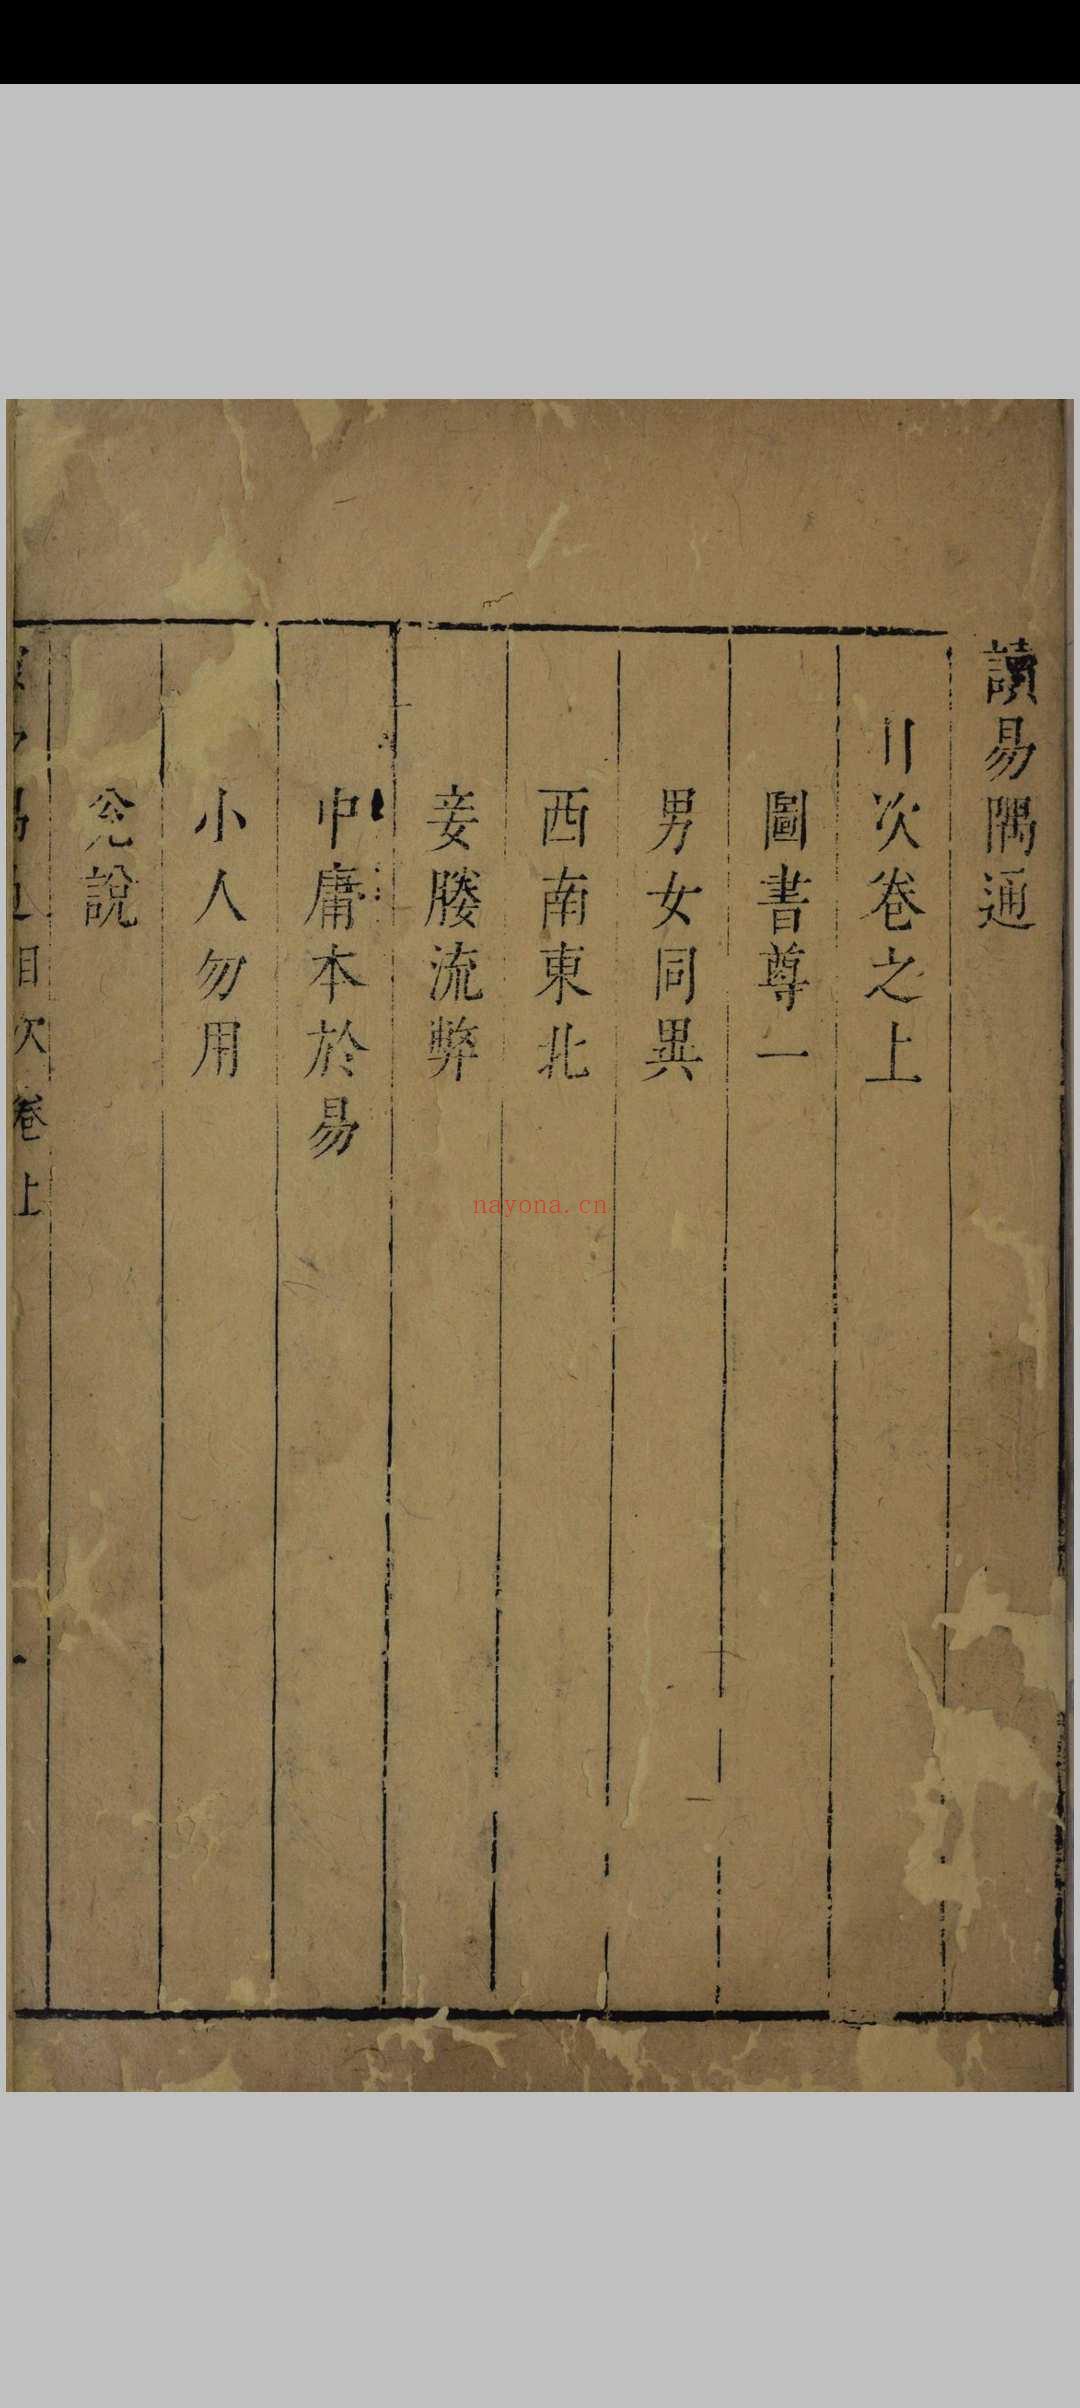 讀易隅通
目次卷之上
圖書尊一
男女同異
西南東北
妾媵流弊
中庸本於易
小人勿用
兊說
目次 卷上
nayona.cn